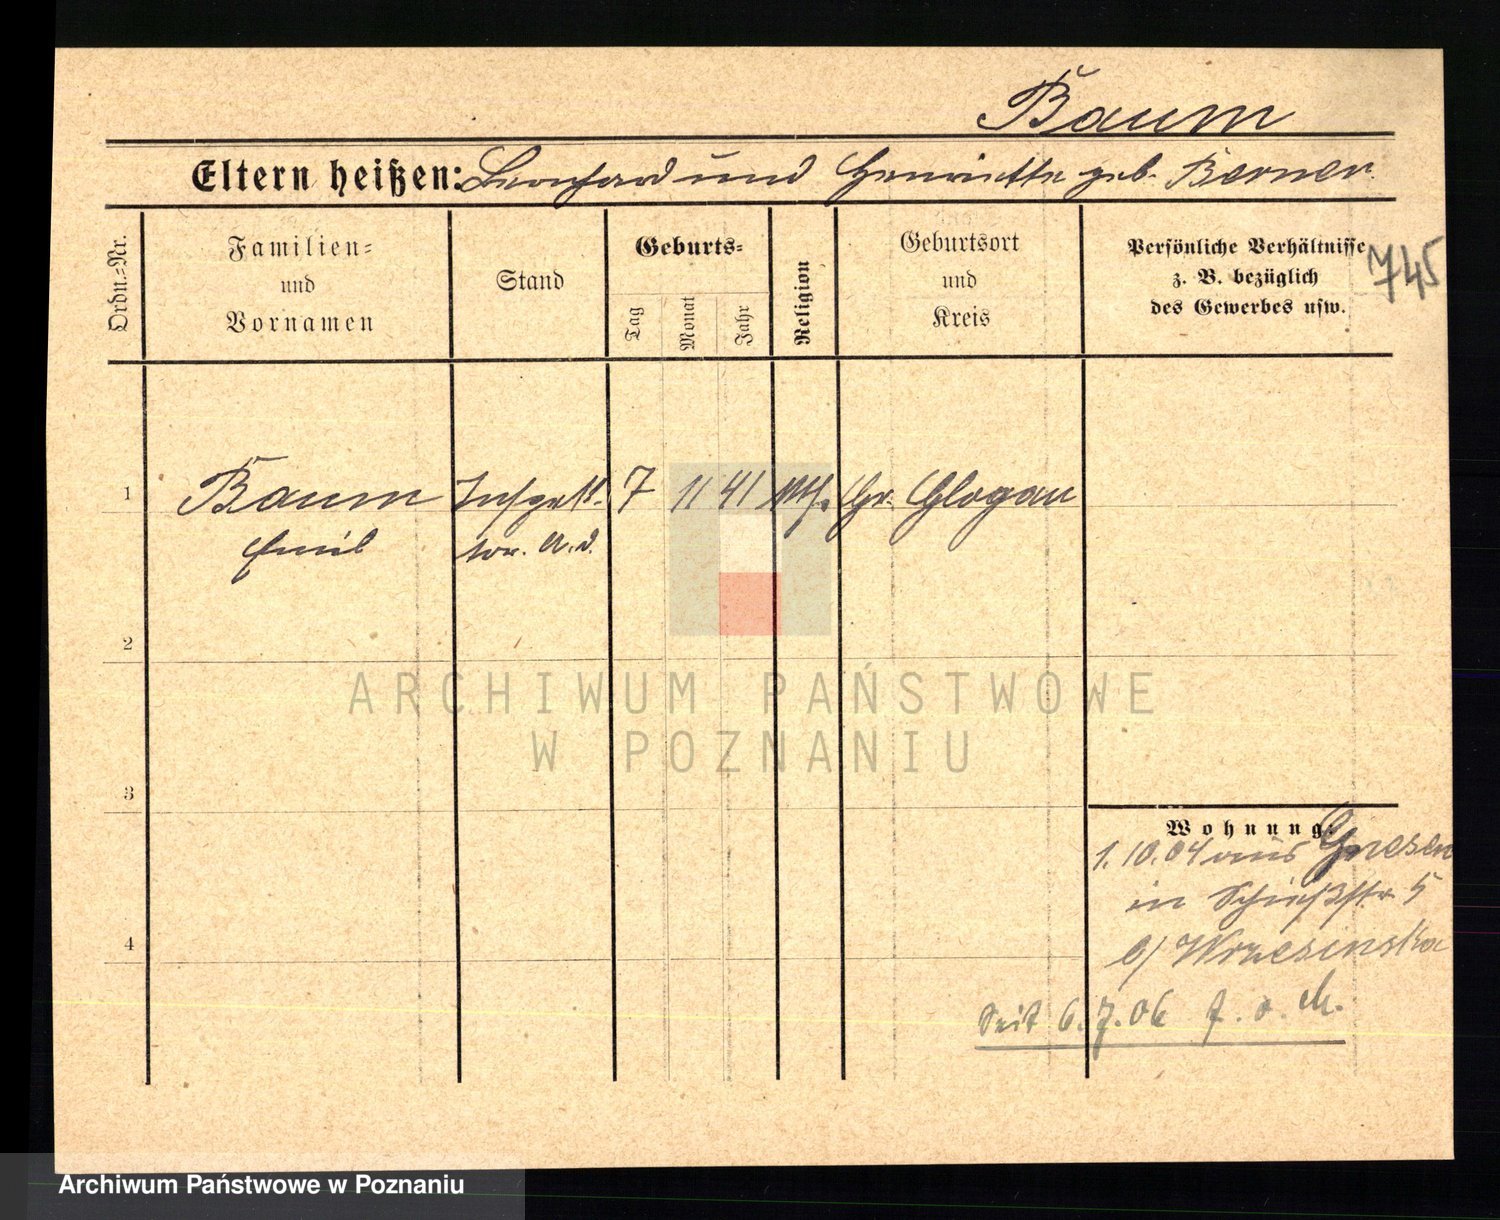 Baum
Eltern heißen: Leonhard und Henriette geb. Berner
Ordn.=Nr.
Familien=
und
Vornamen
Stand
Geburts=
Tag
Monat
Jahr
Religion
Geburtsort
und
Kreis
Persönliche Verhältnisse
z. B. bezüglich
des Gewerbes usw.
745
1 Baum Inspek- 7 11 41 Gr. Glogau
Emil tor. a. d.
2
ARCHIWUM PAŃSTWOWE
W POZNANIU
3
Wohnung:
1.10.04 aus Gnesen
in Schießstr 5
b/ Wrzesinska
4
Seit 6.7.06
Archiwum Państwowe w Poznaniu